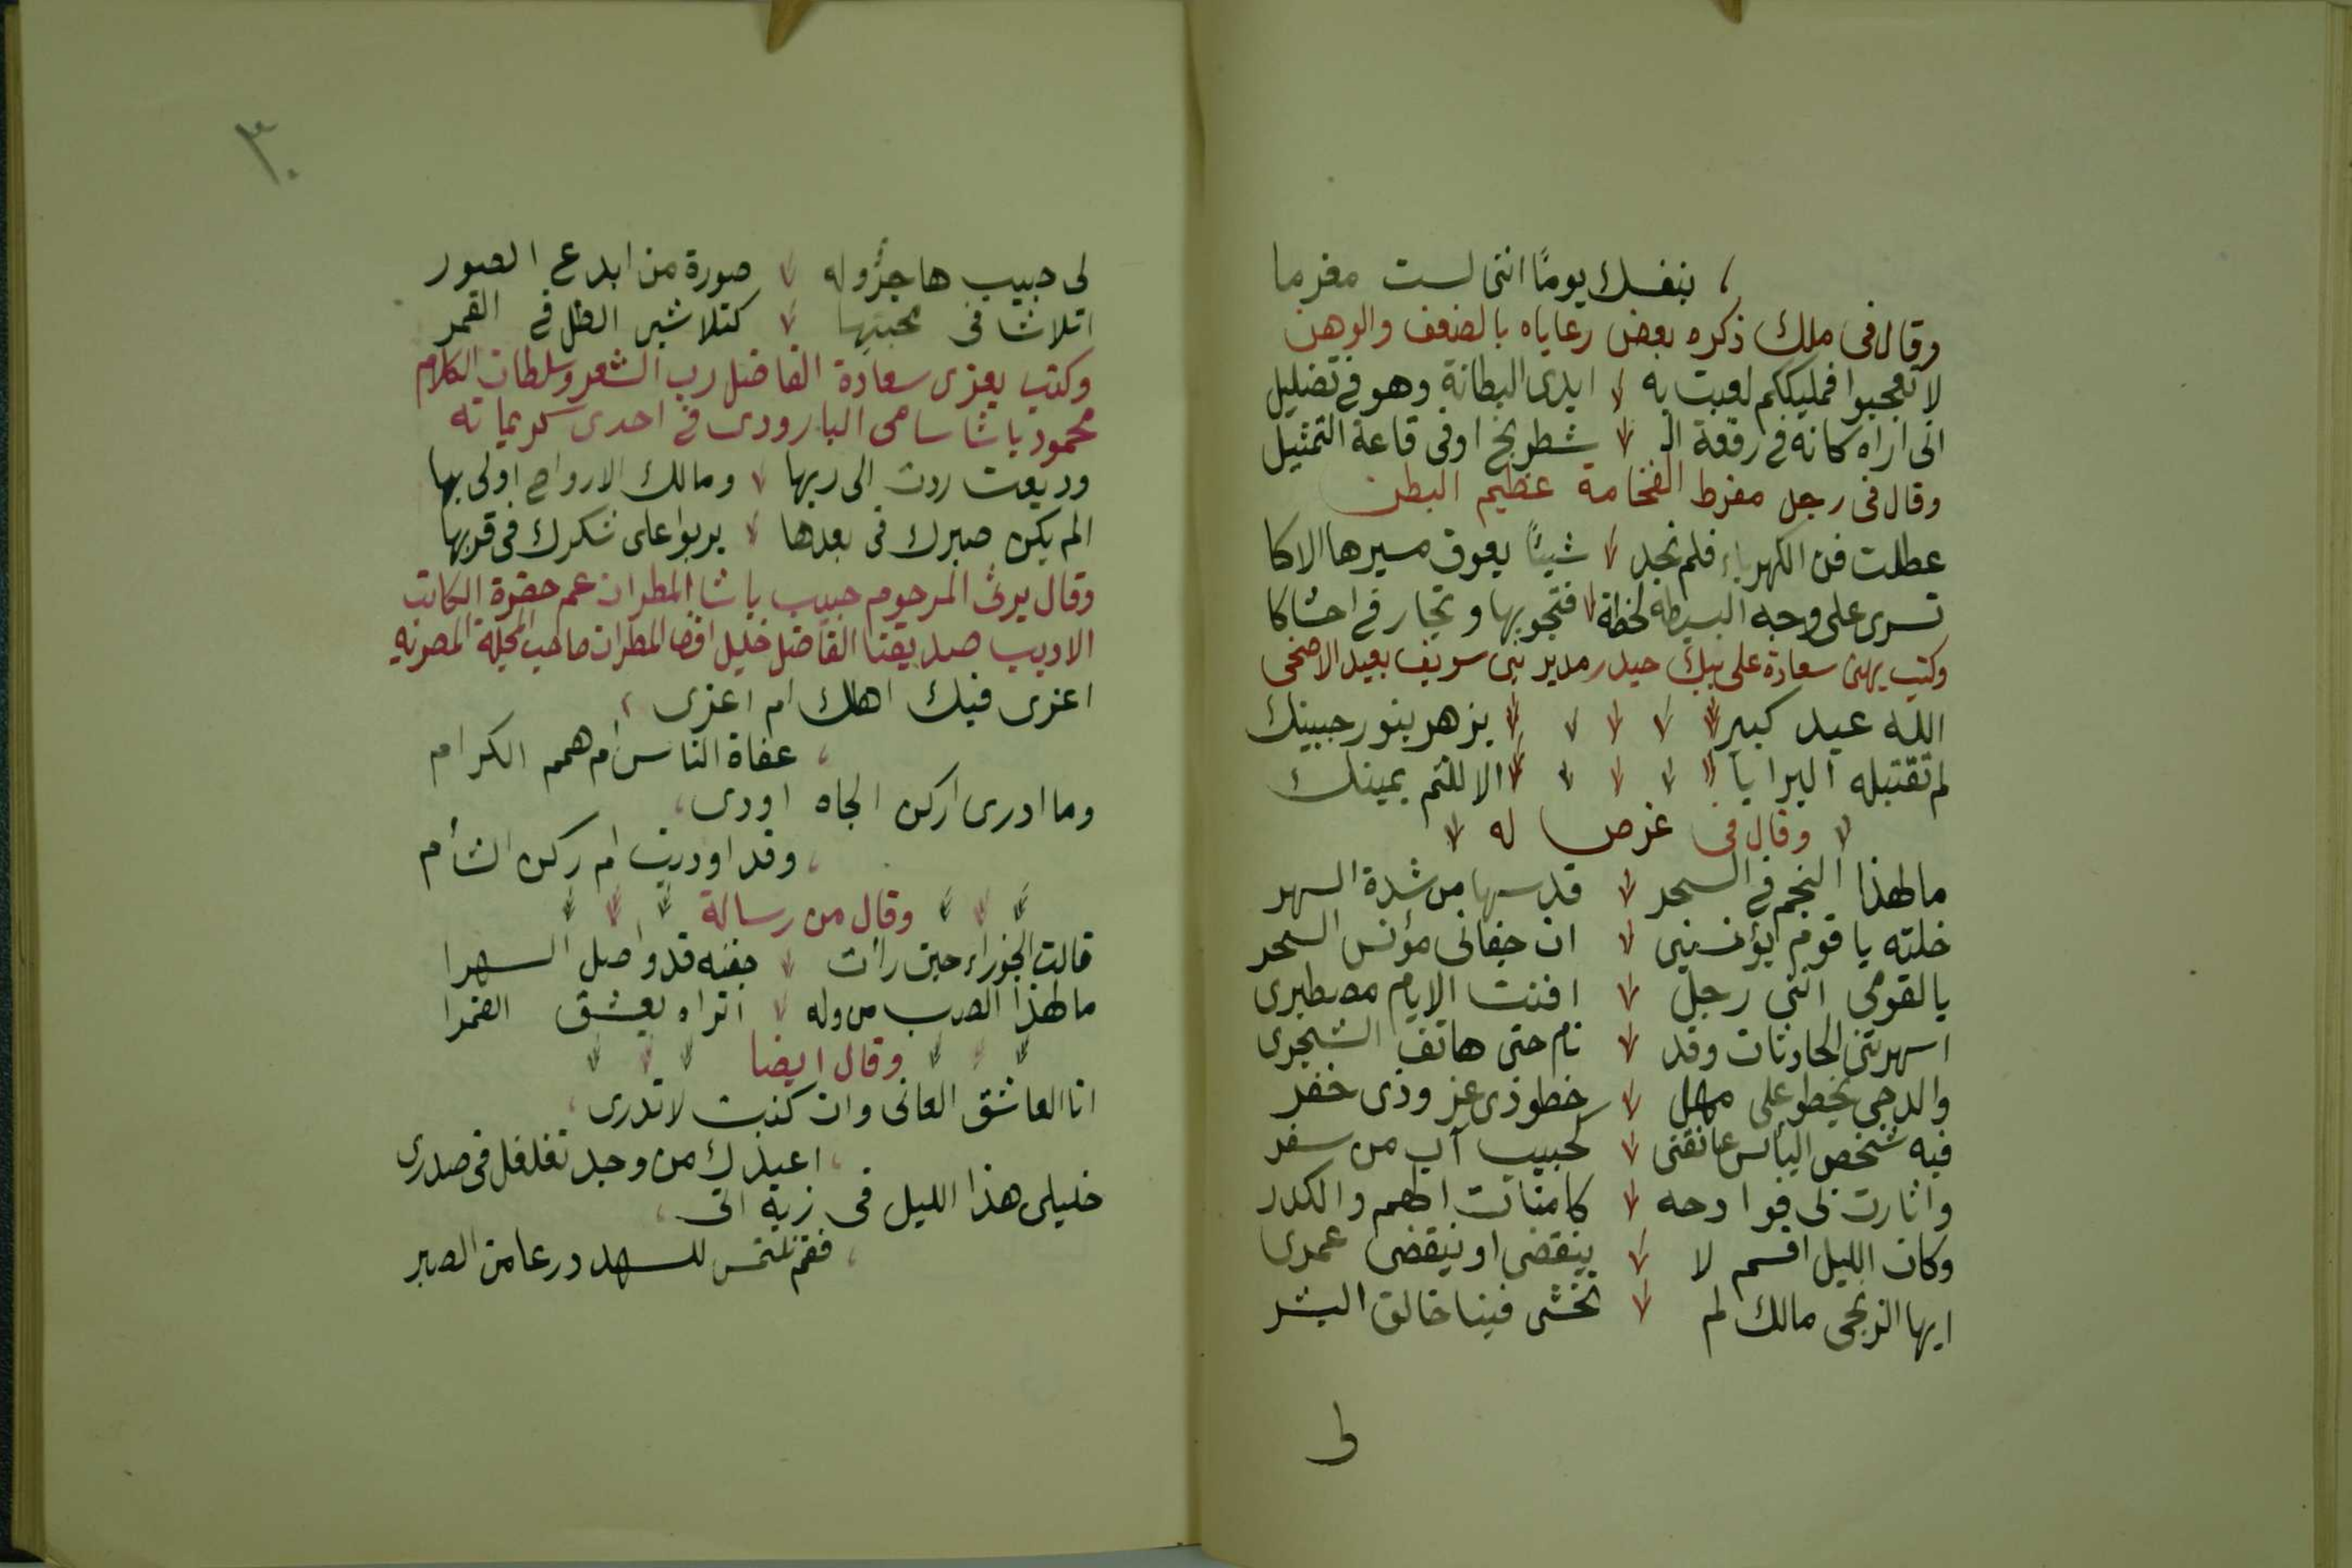 بنفسك يومًا اننى لست مغرما
وقال فى ملك ذكره بعض رعاياه بالضعف والوهن
لا تعجبوا فمليككم لعبت به ايدى البطانة وهو فى تضليل
انى اراه كانه فى رقعة الـ شطرنج او فى قاعة التمثيل
وقال فى رجل مفرط الفخامة عظيم البطن
عطلت فن الكهرباء فلم نجد شيئًا يعوق مسيرها الاكا
تسرى على وجه البسيطه لحظة فتجوبها وتحار فى احشاكا
وكتب يهنى سعادة على بيك حيدر مدير بنى سويف بعيد الاضحى
الله عيد كبير يزهر بنور جبينك
لم تقتبله البرايا الا للثم يمينك
وقال فى غرض له
ما لهذا النجم فى السحر قد سها من شدة السهر
خلته يا قوم يؤنسنى ان جفانى مؤنس السحر
يا لقومى اننى رجل افنت الايام مصطبرى
اسهرتنى الحادثات وقد نام حتى هاتف الشجرى
والدجى يخطو على مهل خطو ذى عز وذى خفر
فيه شخص اليأس عانقنى كحبيب آب من سفر
واثارت بى فوادحه كامنات الهم والكدر
وكان الليل اقسم لا ينقضى او ينقضى عمرى
ايها الزنجى مالك لم تخشى فينا خالق البشر
لى
٣٠
لى حبيب هاجرٌ وله صورة من ابدع الصور
اتلاشا فى محبتها كتلاشى الظل فى القمر
وكتب يعزى سعادة الفاضل رب الشعر وسلطان الكلام
محمود باشا سامى البارودى فى احدى كريماته
وديعت ردت الى ربها ومالك الارواح اولى بها
الم يكن صبرك فى بعدها يربوا على شكرك فى قربها
وقال يرثى المرحوم حبيب باشا المطران عم حضرة الكاتب
الاديب صديقنا الفاضل خليل افندى المطران صاحب المجلة المصريه
اعزى فيك اهلك ام اعزى
عفاة الناس ام همم الكرام
وما ادرى اركن الجاه اودى
وقد اوديت ام ركن الشأم
وقال من رسالة
قالت الجوزاء حين رأت جفنه قد واصل السهرا
ما لهذا الصب من وله اتراه يعشق القمرا
وقال ايضا
انا العاشق العانى وان كنت لا تدرى
اعيذك من وجد تغلغل فى صدرى
خليلى هذا الليل فى زيه اتى
فقم نلتمس للسهد درعا من الصبر